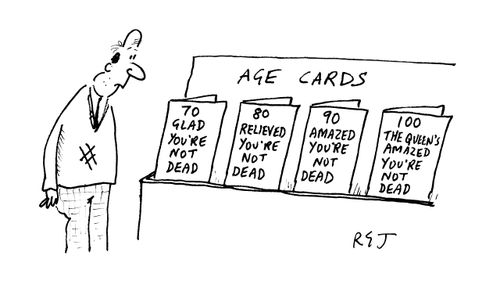 AGE CARDS
70
GLAD
YOU'RE
NOT
DEAD
80
RELIEVED
YOU'RE
NOT
DEAD
90
AMAZED
YOU'RE
NOT
DEAD
100
THE QUEEN'S
AMAZED
YOU'RE
NOT
DEAD
RGJ